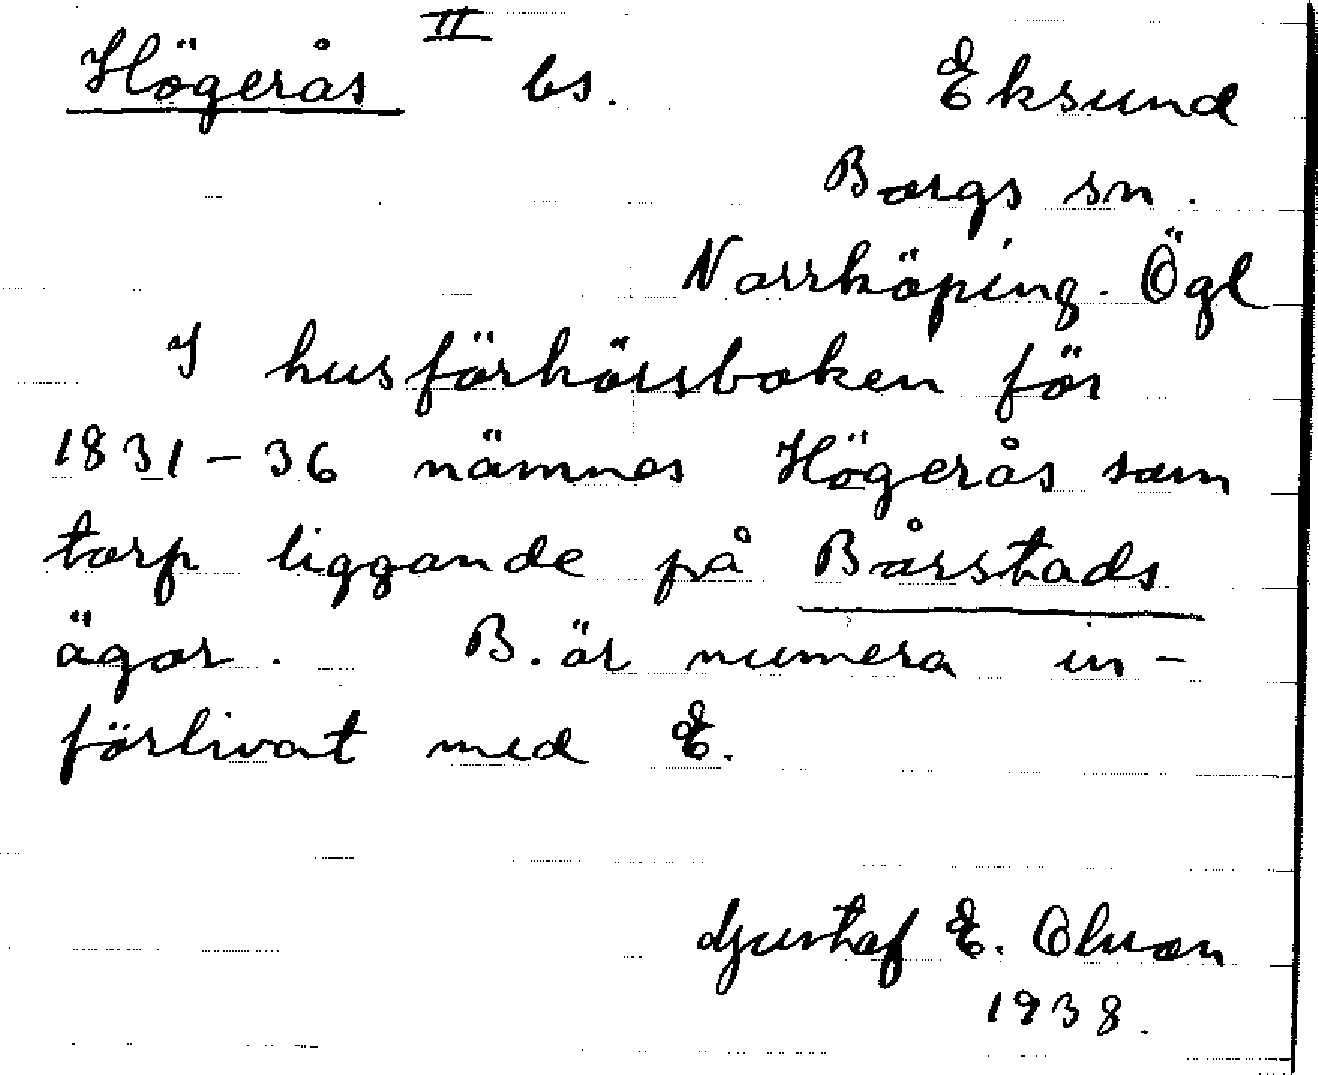 II
Högerås bs. Eksund
Borgs sn.
Norrköping. Ögl
I husförhörsboken för
1831-36 nämnes Högerås som
torp liggande på Bårstads
ägor. B. är numera in-
förlivat med E.
Gustaf E. Olsson
1938.